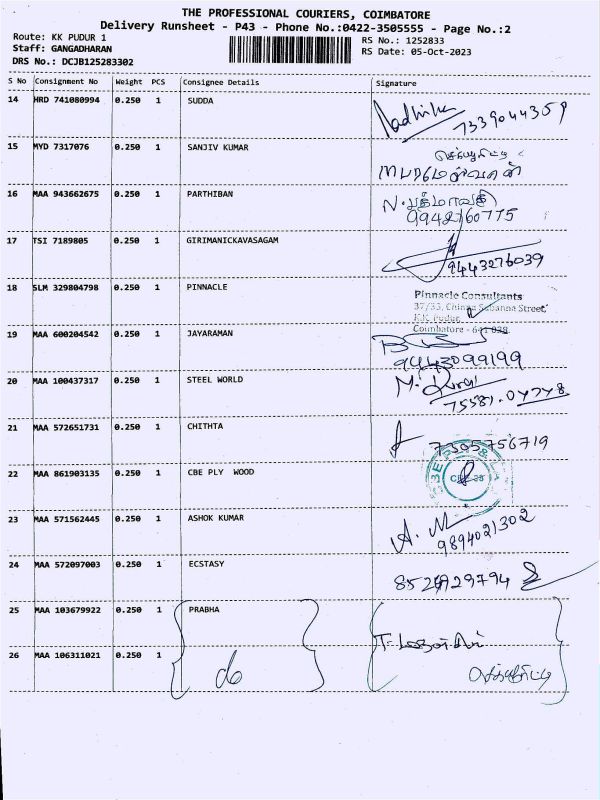 THE PROFESSIONAL COURIERS, COIMBATORE
Delivery Runsheet - P43 - Phone No.:0422-3505555 - Page No.:2
Route: KK PUDUR 1
RS No.: 1252833
Staff: GANGADHARAN
RS Date: 05-Oct-2023
DRS No.: DCJB125283302
S No Consignment No Weight PCS Consignee Details Signature
14 HRD 741080994 0.250 1 SUDDA
Radhika
7339044359
15 MYD 7317076 0.250 1 SANJIV KUMAR
செக்யூரிட்டி
16 MAA 943662675 0.250 1 PARTHIBAN
N. பத்மாவதி
9942760775
17 TSI 7189805 0.250 1 GIRIMANICKAVASAGAM
9443276039
18 SLM 329804798 0.250 1 PINNACLE
Pinnacle Consultants
37/33, Chinna Subanna Street,
K.K. Pudur,
Coimbatore - 641 038.
19 MAA 600204542 0.250 1 JAYARAMAN
9443099199
20 MAA 100437317 0.250 1 STEEL WORLD
M. Durai
75581.04748
21 MAA 572651731 0.250 1 CHITHTA
7305756719
22 MAA 861903135 0.250 1 CBE PLY WOOD
23 MAA 571562445 0.250 1 ASHOK KUMAR
9894021302
24 MAA 572097003 0.250 1 ECSTASY
25 MAA 103679922 0.250 1 PRABHA
26 MAA 106311021 0.250 1
do
செக்யூரிட்டி